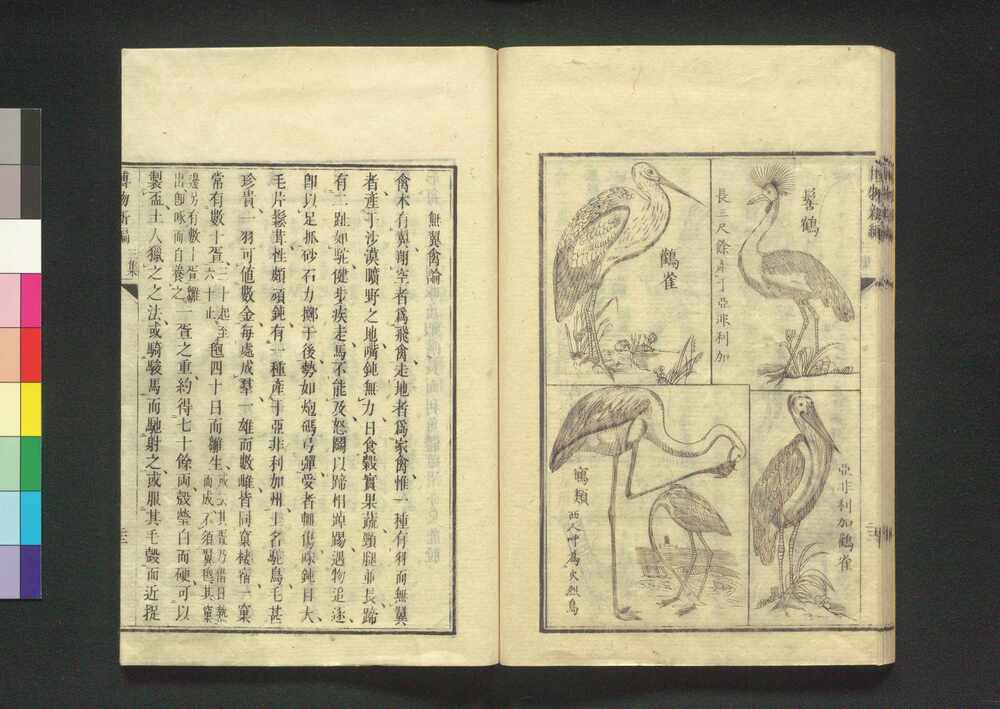 髻鶴
長三尺餘產于亞非利加
鸛雀
亞非利加鸛雀
鶴類
西人呼為火烈鳥
無翼禽論
禽本有翼翔空者為飛禽走地者為家禽惟一種有羽而無翼
者產于沙漠曠野之地嘴鈍無力日食穀實果蔬頸腿並長蹄
有二趾如駝健步疾走馬不能及怒鬭以蹄相踔踢遇物追逐
即以足抓砂石力擲于後勢如炮碼弓彈愛者輒傷喙鈍目大
毛片鬆茸性頗頑鈍有一種產于亞非利加州土名駝鳥毛甚
珍貴一羽可值數金每處成羣一雄而數雌皆同窠棲宿一窠
常有數十蛋二十起至六十止孢四十日而雛生或云其蛋乃借日熱而成不須翼氊其窠
邊另有數十蛋雛出即啄而自養之一蛋之重約得七十餘兩殼瑩白而硬可以
製盃土人獵之之法或騎駿馬而馳射之或服其毛殼而近捉
博物新編
三集
三